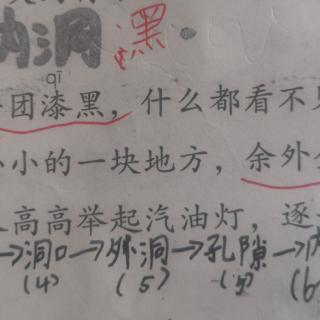 洞 黑
qī
团漆黑，什么都看不
小的一块地方，余外
高高举起汽油灯，逐
→洞口→外洞→孔隙→
(4) (5)